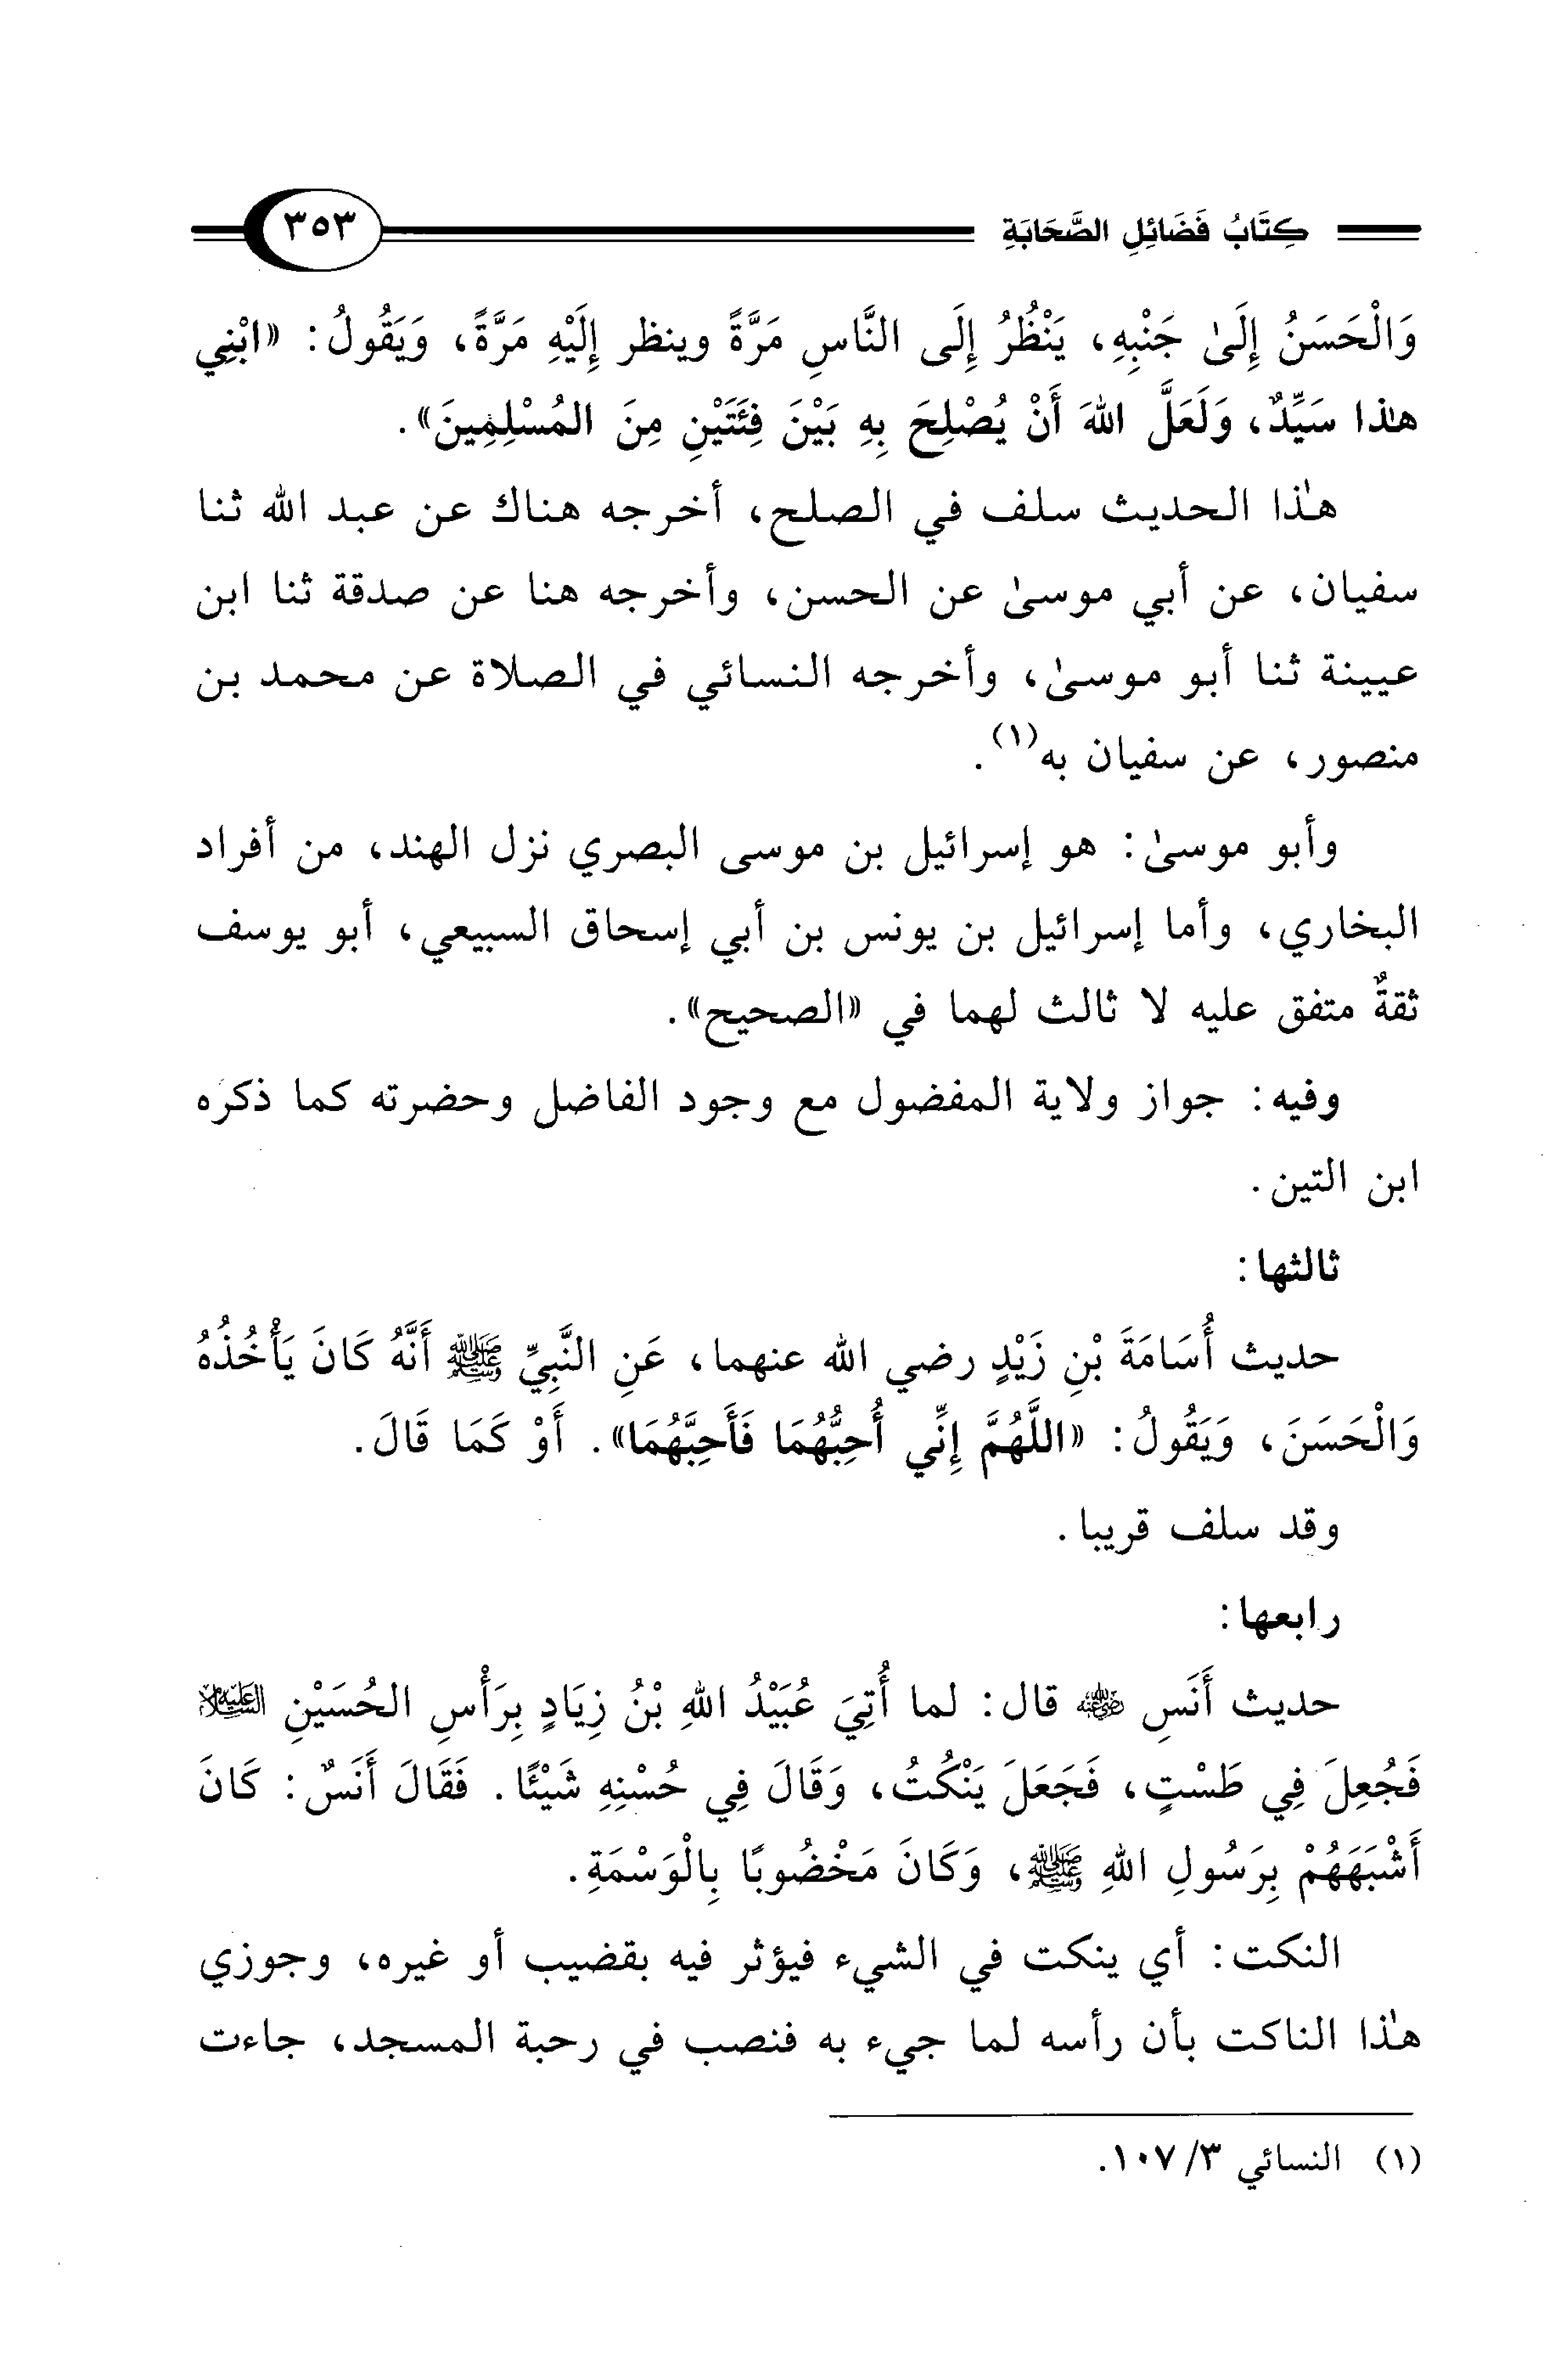 كِتَابُ فَضَائِلِ الصَّحَابَةِ ٣٥٣
وَالْحَسَنُ إِلَىٰ جَنْبِهِ، يَنْظُرُ إِلَى النَّاسِ مَرَّةً وينظر إِلَيْهِ مَرَّةً، وَيَقُولُ: «ابْنِي
هذا سَيِّدٌ، وَلَعَلَّ اللهَ أَنْ يُصْلِحَ بِهِ بَيْنَ فِئَتَيْنِ مِنَ المُسْلِمِينَ».
هذا الحديث سلف في الصلح، أخرجه هناك عن عبد الله ثنا
سفيان، عن أبي موسىٰ عن الحسن، وأخرجه هنا عن صدقة ثنا ابن
عيينة ثنا أبو موسىٰ، وأخرجه النسائي في الصلاة عن محمد بن
منصور، عن سفيان به(١).
وأبو موسىٰ: هو إسرائيل بن موسى البصري نزل الهند، من أفراد
البخاري، وأما إسرائيل بن يونس بن أبي إسحاق السبيعي، أبو يوسف
ثقةٌ متفق عليه لا ثالث لهما في «الصحيح».
وفيه: جواز ولاية المفضول مع وجود الفاضل وحضرته كما ذكره
ابن التين.
ثالثها:
حديث أُسَامَةَ بْنِ زَيْدٍ رضي الله عنهما، عَنِ النَّبِيِّ ﷺ أَنَّهُ كَانَ يَأْخُذُهُ
وَالْحَسَنَ، وَيَقُولُ: «اللَّهُمَّ إِنِّي أُحِبُّهُمَا فَأَحِبَّهُمَا». أَوْ كَمَا قَالَ.
وقد سلف قريبا.
رابعها:
حديث أَنَسِ رضي الله عنه قال: لما أُتِيَ عُبَيْدُ اللهِ بْنُ زِيَادٍ بِرَأْسِ الحُسَيْنِ عليه السلام
فَجُعِلَ فِي طَسْتٍ، فَجَعَلَ يَنْكُتُ، وَقَالَ فِي حُسْنِهِ شَيْئًا. فَقَالَ أَنَسٌ: كَانَ
أَشْبَهَهُمْ بِرَسُولِ اللهِ ﷺ، وَكَانَ مَخْضُوبًا بِالْوَسْمَةِ.
النكت: أي ينكت في الشيء فيؤثر فيه بقضيب أو غيره، وجوزي
هذا الناكت بأن رأسه لما جيء به فنصب في رحبة المسجد، جاءت
(١) النسائي ٣/ ١٠٧.